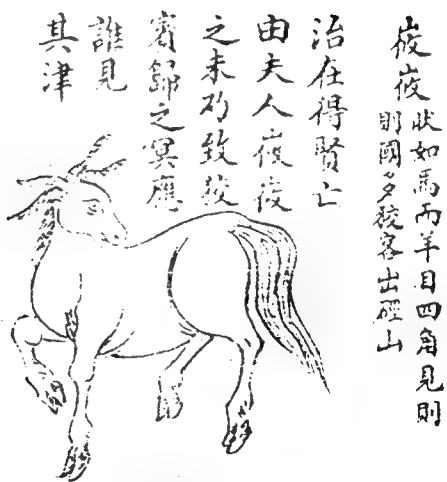 峳峳
狀如馬而羊目四角見則
則國多狡客出硜山
治在得賢亡
由夫人峳峳
之來乃致狡
賓歸之冥應
誰見
其津